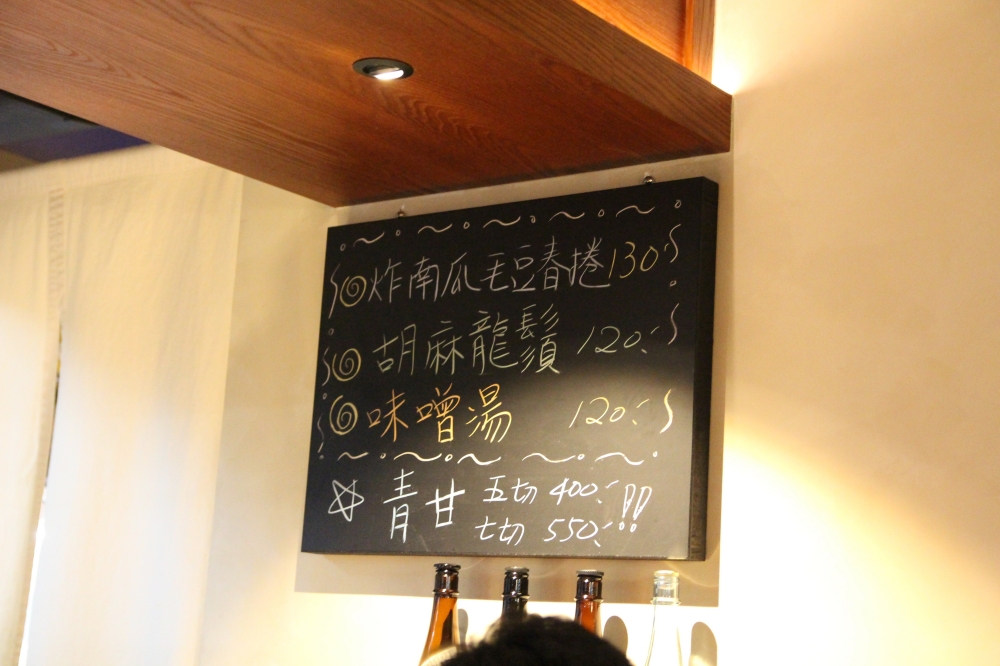 炸南瓜毛豆春捲130.-
胡麻龍鬚 120.-
味噌湯 120.-
青甘 五切 400.-!!
七切 550.-